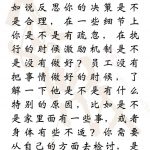 如说反思你的决策是不
是合理，在一些细节上
你是不是有疏忽，在执
行的时候激励机制是不
是没有做好？员工没有
把事情做好的时候，了
解一下他是不是有什么
特别的原因，比如是不
是家里面有一些事，或者
身体有些不适？你需要
从自己的方面去检讨，是